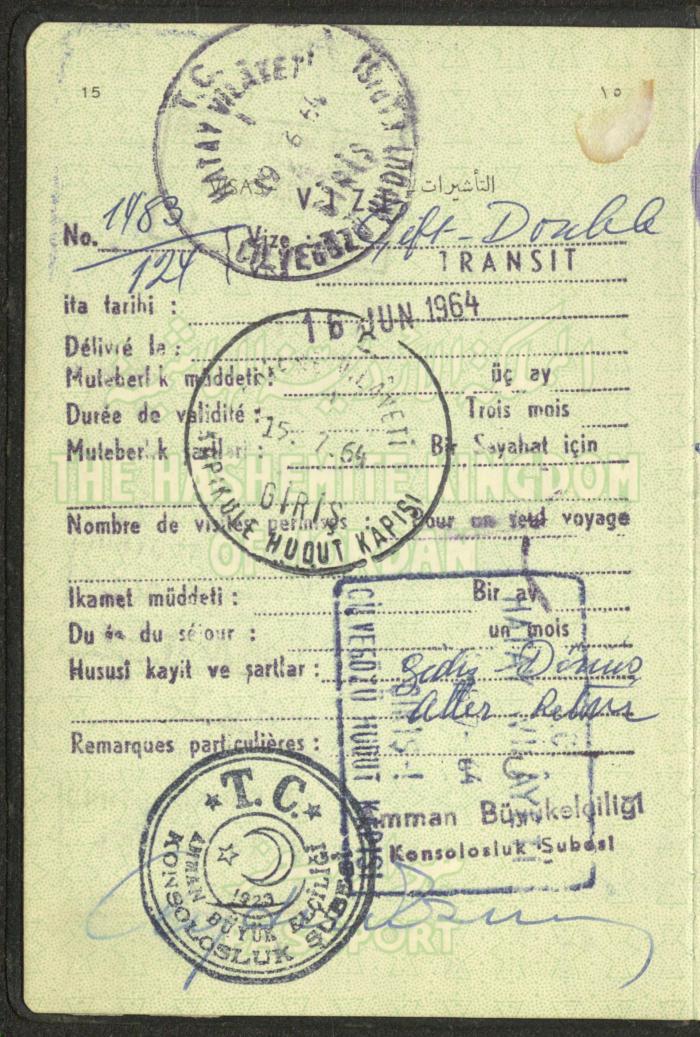 15
١٥
T.C.
HATAY VİLÂYETİ
19 6 64
GİRİŞ
CİLVEGÖZÜ HUDUT KAPISI
VISAS
التأشيرات
VİZ
No. 1483/124 Vize : Çift-Double
TRANSIT
ita tarihi :
16 JUN 1964
Délivré le :
Muteberlik müddeti :
üç ay
VİLÂYETİ
Durée de validité :
Trois mois
15. 7.64
Muteberlik şartlari :
Bir Seyahat için
GİRİŞ
KAPIKULE HUDUT KAPISI
THE HASHEMITE KINGDOM
Nombre de visites permises : Pour un seul voyage
OF JORDAN
Ikamet müddeti :
Bir ay
Durée du séjour :
un mois
Hususî kayit ve şartlar :
Gidiş - Dönüş
Aller - Retour
Remarques particulières :
CİLVEGÖZÜ HUDUT KAPISI
GİRİŞ
64
HATAY VİLÂYETİ
Amman Büyükelçiliği
Konsolosluk Şubesi
T.C.
1923
AMMAN BÜYÜK ELÇİLİĞİ
KONSOLOSLUK ŞUBESİ
PASSPORT